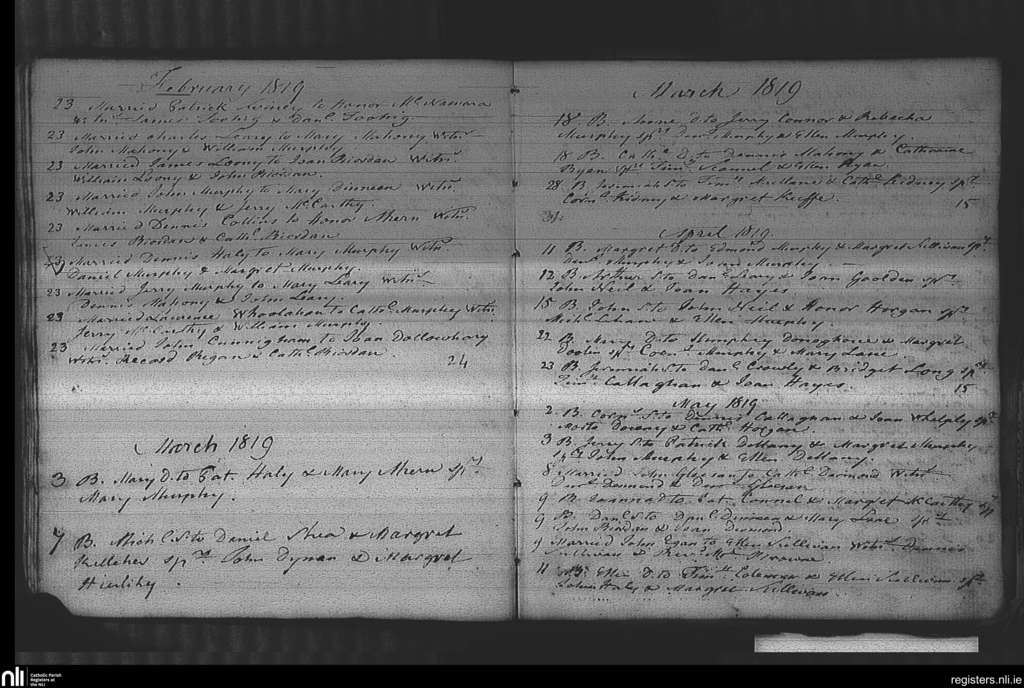 February 1819
23 Married Patrick to Honor McNamara
Witns. James & Danl.
23 Married Charles Leary to Mary Mahony Witns.
John Mahony & William Murphy
23 Married James Loony to Joan Riordan Witns.
William Loony & John Riordan.
23 Married John Murphy to Mary Dinnean Witns.
William Murphy & Jerry McCarthy.
23 Married Dennis Collins to Honor Ahern Witns.
James Riordan & Cathe. Riordan
23 Married Dennis Haly to Mary Murphy Witns.
Daniel Murphy & Margret Murphy.
23 Married Jerry Murphy to Mary Leary Witns.
Dennis Mahony & John Leary.
23 Married Lawrence Whoolahan to Cathe. Murphy Witns.
Jerry McCarthy & William Murphy.
23 Married John Cunningham to Joan
Witns. Regan & Cathe. Riordan
24
March 1819
3 B. Mary D. to Pat. Haly & Mary Ahern spt.
Mary Murphy.
7 B. Michl. S. to Daniel Shea & Margret
Kelleher sprs. John Dynan & Margret
Hierlihy.
March 1819
18 B. Anne D. to Jerry Connor & Rebecka
Murphy sprs. Murphy & Ellen Murphy.
18 B. Cathe. D. to Dennis Mahony & Catharine
Ryan sprs. Timy. Scannel & Ellen Ryan
28 B. Jeremiah S. to Timy. & Cathe. Kidney spt.
Corns. Kidney & Margret Keeffe.
15
April 1819
11 B. Margret D. to Edmond Murphy & Margret Sullivan spt.
Murphy & Joan Murphy.
12 B. Arthur S. to Danl. Leary & Joan spt.
John Neil & Joan Hayes
15 B. John S. to John Neil & Honor Horgan spt.
Michl. & Ellen Murphy.
22 B. Mary D. to Humphry Donoghoue & Margret
spt. Corns. Murphy & Mary Lane
23 B. Jeremiah S. to Danl. Crowly & Bridget Long spt.
Timy. Callaghan & Joan Hayes.
15
May 1819
2 B. Corns. S. to Dennis Callaghan & Joan Whelply spt.
Downey & Cathe. Horgan
3 B. Jerry S. to Patrick & Margret Murphy
spt. John Murphy & Ellen
8 Married John Gleeson to Cathe. Desmond Witns.
Desmond & Gleeson
9 B. Joanna D. to Pat. Connel & Margret McCarthy spt.
9 B. Danl. S. to Danl. Dinnean & Mary Lane spt.
John Riordan & Joan
9 Married John Egan to Ellen Sullivan Witns. Dennis
Sullivan &
11 B. Ellen D. to Timy. & Ellen Sullivan spt.
John Haly & Margret Sullivan.
nli
Catholic Parish
Registers at
the NLI
registers.nli.ie